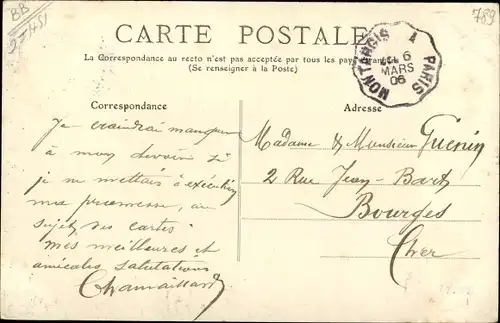 BB
789
CARTE POSTALE
La Correspondance au recto n'est pas acceptée par tous les pays étrangers
(Se renseigner à la Poste)
MONTARGIS A PARIS
6
MARS
06
Correspondance
Je craindrai manquer
à mon devoir si
je ne mettais à exécution
ma promesse, au
sujet des cartes
mes meilleures et
amicales salutations
Chamaillard
Adresse
Madame & Monsieur Guenin
2 Rue Jean-Bart
Bourges
Cher